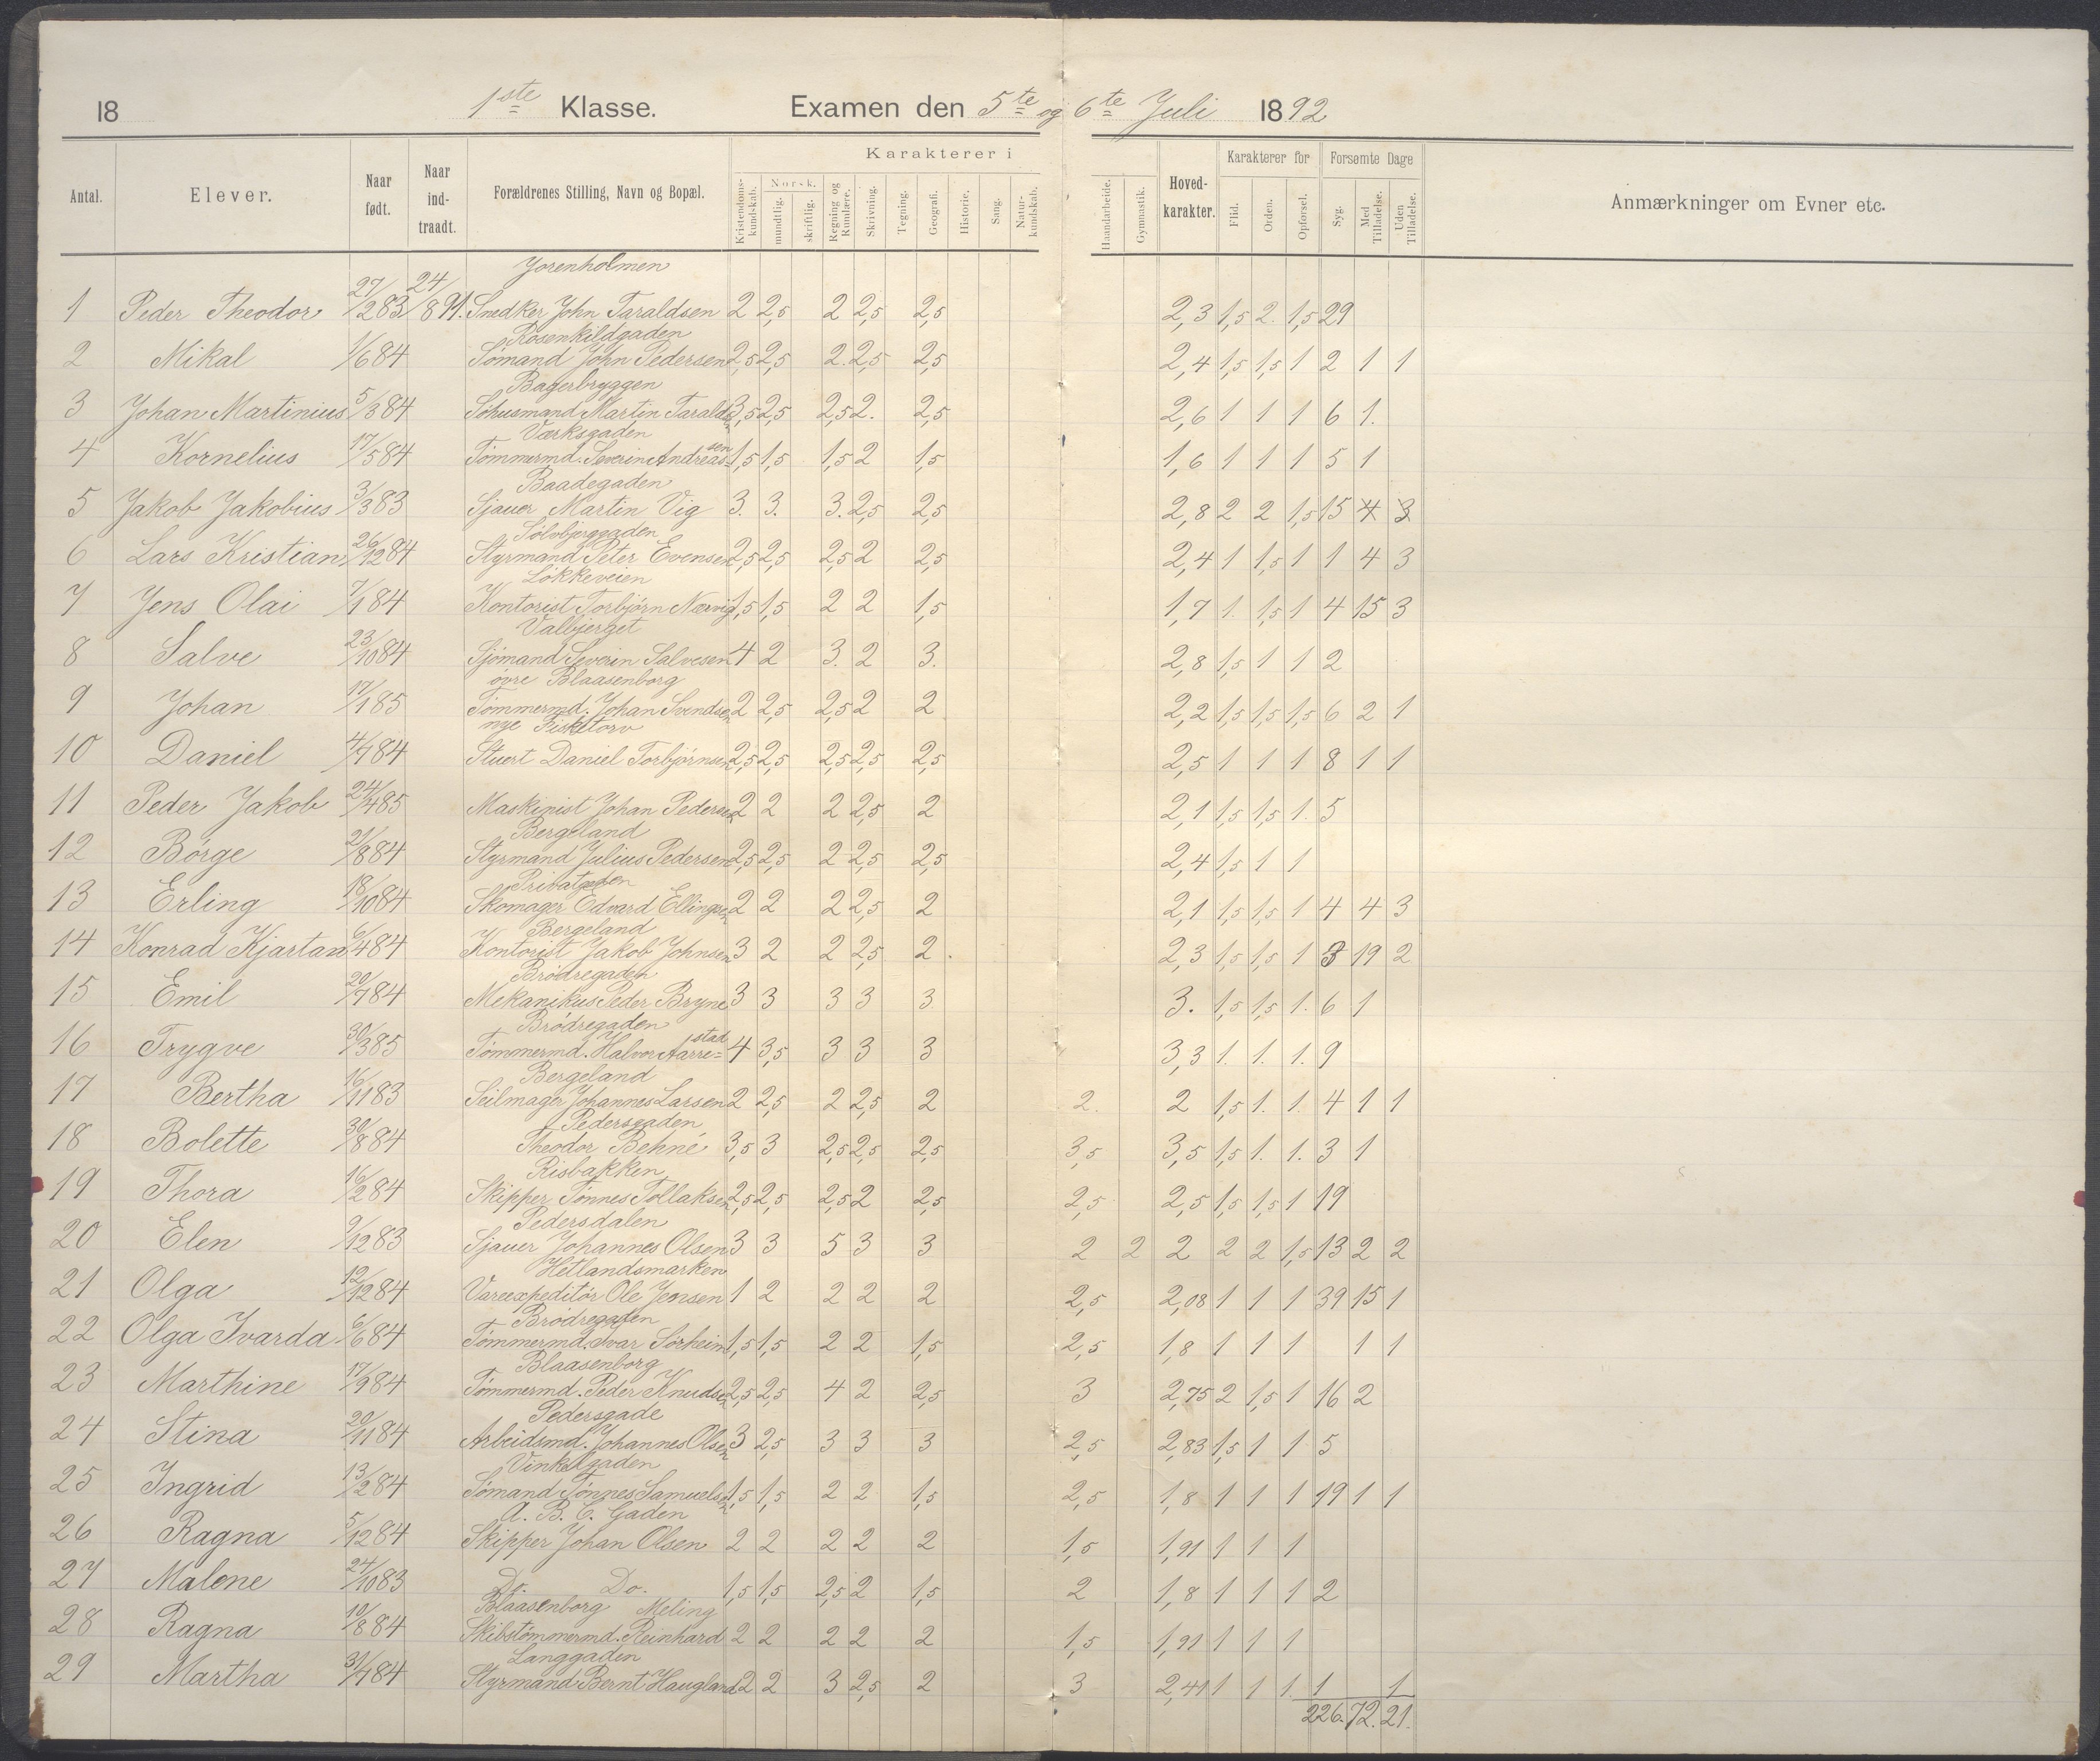 18 1ste Klasse. Examen den 5te og 6te Juli 1892
Karakterer i
Antal. Elever. Naar født. Naar ind-traadt. Forældrenes Stilling, Navn og Bopæl. Kristendoms-kundskab. Norsk. mundtlig. skriftlig. Regning og Rumlære. Skrivning. Tegning. Geografi. Historie. Sang. Natur-kundskab. Haandarbeide. Gymnastik. Hoved-karakter. Karakterer for Flid. Orden. Opførsel. Forsømte Dage Syg. Med Tilladelse. Uden Tilladelse. Anmærkninger om Evner etc.
Jorenholmen
1 Peder Theodor 27/2 83 24/8 91. Snedker John Taraldsen 2 2,5 2 2,5 2,5 2,3 1,5 2. 1,5 29
Rosenkildgaden
2 Mikal 1/6 84 Sømand John Pedersen 2,5 2,5 2. 2,5 2,5 2,4 1,5 1,5 1 2 1 1
Bagerbryggen
3 Johan Martinius 5/3 84 Martin 3,5 2,5 2,5 2. 2,5 2,6 1 1 1 6 1.
Værksgaden
4 Kornelius 17/5 84 Tømmermd. Severin Andreassen 1,5 1,5 1,5 2 1,5 1,6 1 1 1 5 1
Baadegaden
5 Jakob Jakobius 3/3 83 Sjauer Martin Vig 3. 3. 3. 2,5 2,5 2,8 2 2 1,5 15 4 3
Sølvbjerggaden
6 Lars Kristian 26/12 84 Styrmand Peter Evensen 2,5 2,5 2,5 2 2,5 2,4 1 1,5 1 1 4 3
Løkkeveien
7 Jens Olai 7/1 84 Kontorist Torbjørn Nærvig 1,5 1,5 2 2 1,5 1,7 1. 1,5 1 4 15 3
Valbjerget
8 Salve 23/10 84 Sjømand Severin Salvesen 4 2 3. 2 3. 2,8 1,5 1 1 2
øvre Blaasenborg
9 Johan 17/1 85 Tømmermd. Johan Svendsen 2 2,5 2,5 2 2 2,2 1,5 1,5 1,5 6 2 1
nye Fisketorv
10 Daniel 4/7 84 Stuert Daniel Torbjørnsen 2,5 2,5 2,5 2,5 2,5 2,5 1 1 1 8 1 1
11 Peder Jakob 24/4 85 Maskinist Johan Pedersen 2 2 2 2,5 2 2,1 1,5 1,5 1. 5
Bergeland
12 Børge 21/8 84 Styrmand Julius Pedersen 2,5 2,5 2 2,5 2,5 2,4 1,5 1 1
13 Erling 18/10 84 Skomager Edvard Ellingsen 2 2 2 2,5 2 2,1 1,5 1,5 1 4 4 3
Bergeland
14 Konrad Kjartan 6/4 84 Kontorist Jakob Johnsen 3 2 2 2,5 2. 2,3 1,5 1,5 1 3 19 2
Brødregaden
15 Emil 20/7 84 Mekanikus Peder Bryne 3 3 3 3 3 3. 1,5 1,5 1. 6 1
Brødregaden
16 Trygve 30/3 85 Tømmermd. Halvor Aarre=stad 4 3,5 3 3 3 3,3 1. 1. 1. 9
Bergeland
17 Bertha 16/11 83 Seilmager Johannes Larsen 2 2,5 2 2,5 2 2. 2 1,5 1. 1. 4 1 1
Pedersgaden
18 Bolette 30/8 84 Theodor Behne 3,5 3 2,5 2,5 2,5 3,5 3,5 1,5 1. 1. 3 1
Risbakken
19 Thora 16/2 84 Skipper Tønnes Tollaksen 2,5 2,5 2,5 2 2,5 2,5 2,5 1,5 1,5 1 19
Pedersdalen
20 Elen 9/12 83 Sjauer Johannes Olsen 3 3 5 3 3 2 2 2 2 2 1,5 13 2 2
Hetlandsmarken
21 Olga 12/12 84 Vareexpeditør Ole Jensen 1 2 2 2 2 2,5 2,08 1 1 1 39 15 1
Brødregaden
22 Olga Ivarda 6/6 84 Tømmermd. Ivar Sørheim 1,5 1,5 2 2 1,5 2,5 1,8 1 1 1 1 1
Blaasenborg
23 Marthine 17/9 84 Tømmermd. Peder Knudsen 2,5 2,5 4 2 2,5 3 2,75 2 1,5 1 16 2
Pedersgade
24 Stina 20/11 84 Arbeidsmd. Johannes Olsen 3 2,5 3 3 3 2,5 2,83 1,5 1 1 5
Vinkelgaden
25 Ingrid 13/2 84 Sømand Tønnes Samuelsen 1,5 1,5 2 2 1,5 2,5 1,8 1 1 1 19 1 1
A. B. C. Gaden
26 Ragna 5/12 84 Skipper Johan Olsen 2 2 2 2 2 1,5 1,91 1 1 1
27 Malene 24/10 83 Do. Do. 1,5 1,5 2,5 2 1,5 2 1,8 1 1 1 2
Blaasenborg Meling
28 Ragna 10/8 84 Skibstømmermd. Reinhard 2 2 2 2 2 1,5 1,91 1 1 1
Langgaden
29 Martha 31/7 84 Styrmand Bernt Haugland 2 2 3 2,5 2 3 2,41 1 1 1. 1 1
226. 72. 21.